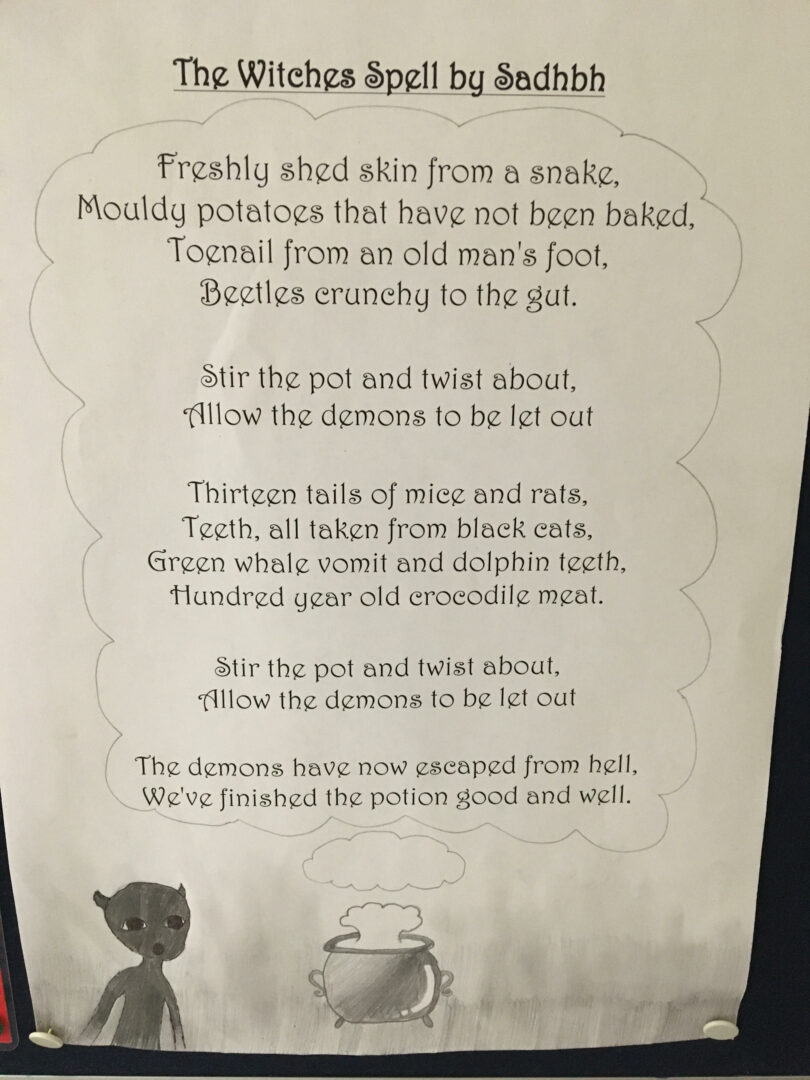 The Witches Spell by Sadhbh
Freshly shed skin from a snake,
Mouldy potatoes that have not been baked,
Toenail from an old man's foot,
Beetles crunchy to the gut.
Stir the pot and twist about,
Allow the demons to be let out
Thirteen tails of mice and rats,
Teeth, all taken from black cats,
Green whale vomit and dolphin teeth,
Hundred year old crocodile meat.
Stir the pot and twist about,
Allow the demons to be let out
The demons have now escaped from hell,
We've finished the potion good and well.